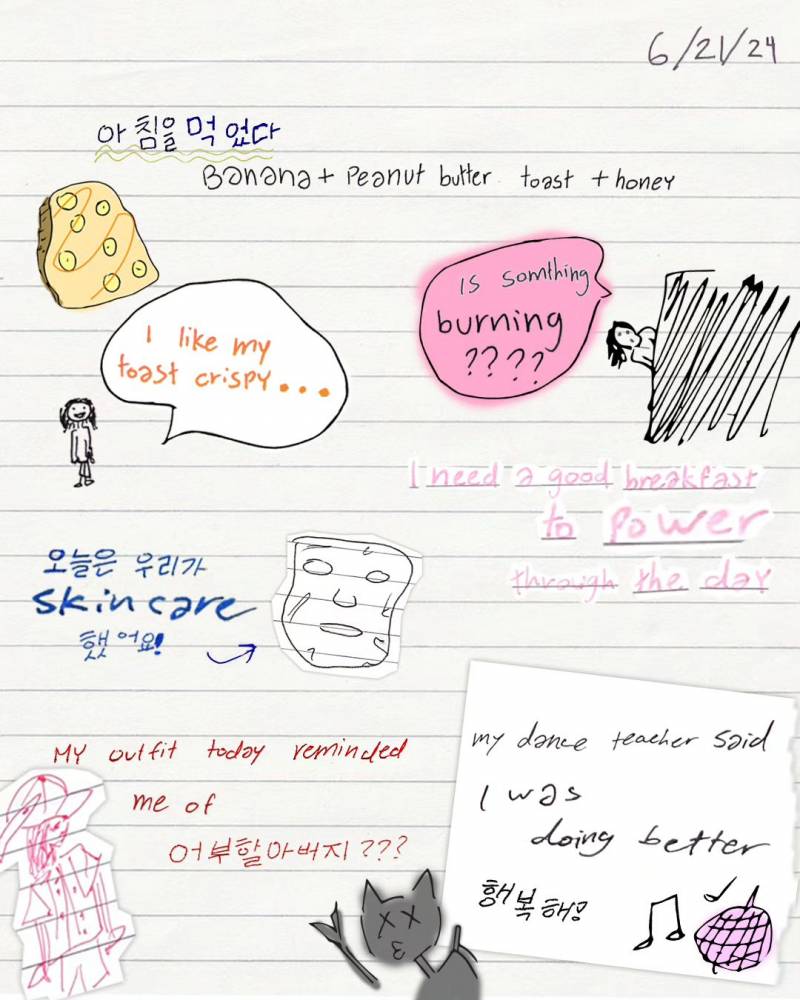 6/21/24
아침을 먹었다
Banana + Peanut butter toast + honey
I like my
toast crispy...
Is somthing
burning
????
I need a good breakfast
to Power
through the day
오늘은 우리가
skincare
했어요!
MY outfit today reminded
me of
어부할아버지???
my dance teacher said
I was
doing better
행복해!